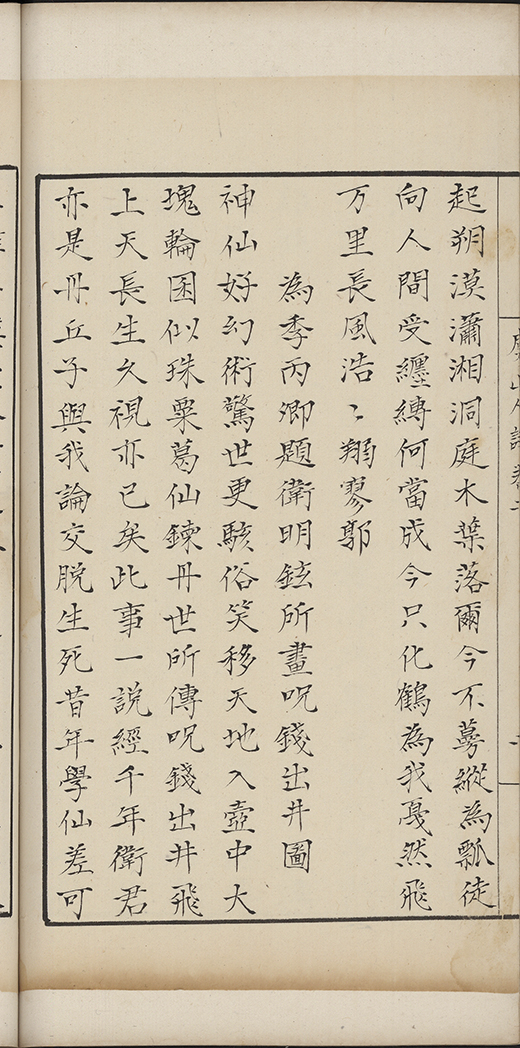 起朔漠瀟湘洞庭木葉落爾今不蕚縱為瓢徒
向人間受纏縛何當成今只化鶴為我戛然飛
万里長風浩〻翔寥郭
為季丙卿題衛明鉉所畫呪錢出井圖
神仙好幻術驚世更駭俗笑移天地入壺中大
塊輪囷似珠粟葛仙鍊丹世所傳呪錢出井飛
上天長生久視亦已矣此事一說經千年衛君
亦是丹丘子與我論交脫生死昔年學仙差可